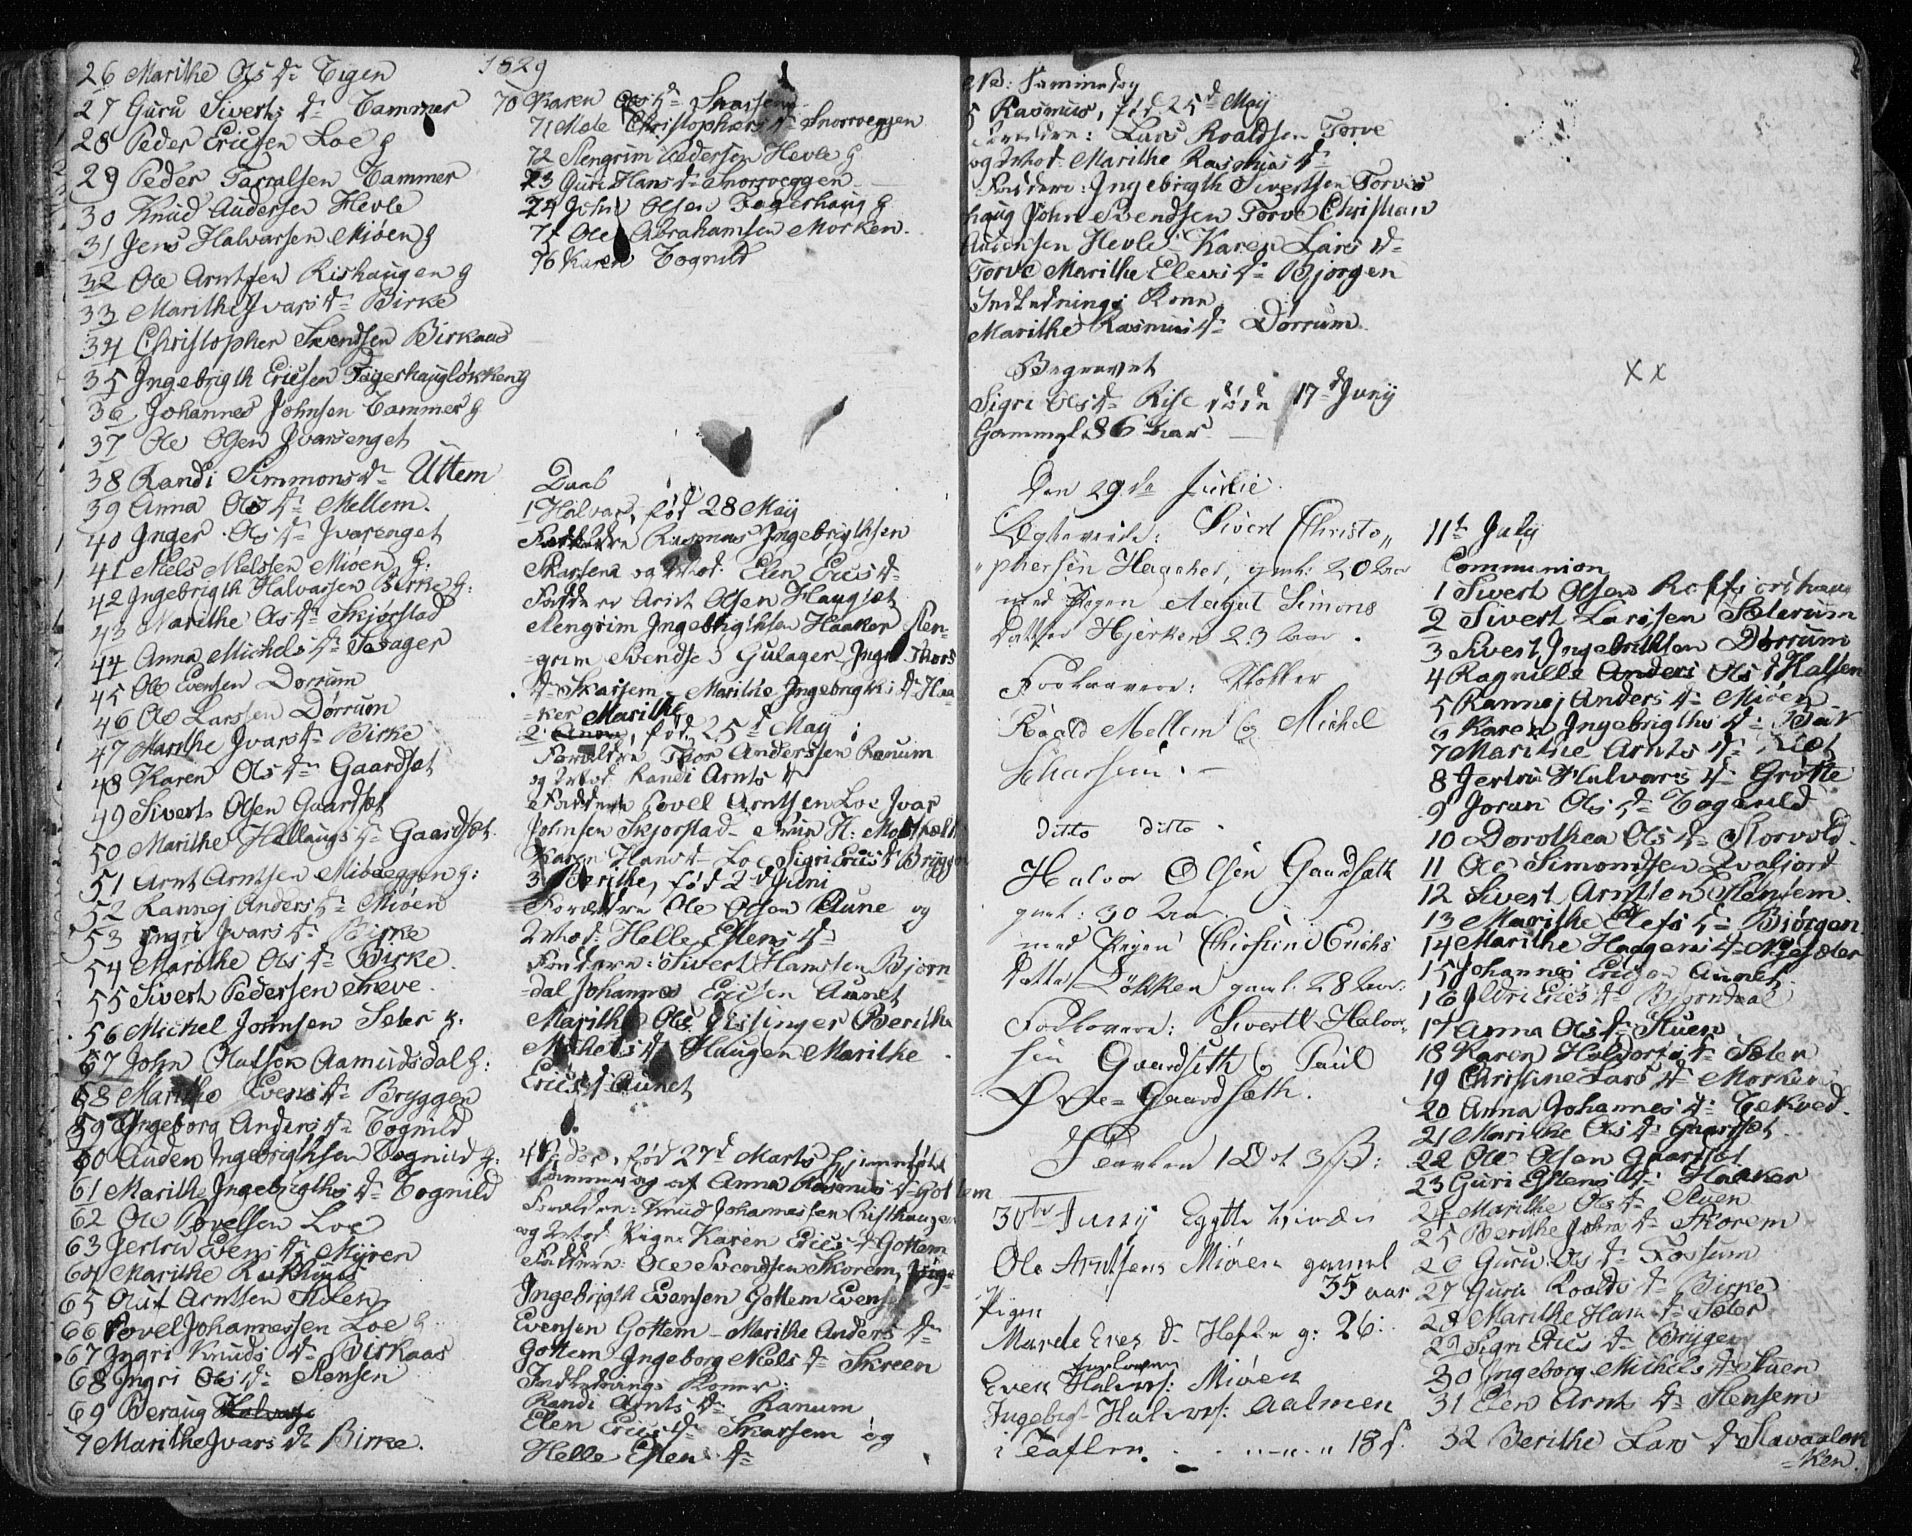 26 Marithe Ols dr Eigen
27 Guru Siverts dr Tammer
28 Peder Ericsen Loe g
29 Peder Tarralsen Tammer
30 Knud Audersen Hevle
31 Jens Halvarsen Mioen g
32 Ole Arntsen Rishaugen g
33 Marithe Jvars dr Birke
34 Christopher Svendsen Birkaas
35 Jngebrigth Ericsen Fageshaugløkken g
36 Johannes Johnsen Tammer g
37 Ole Olsen Jvarsenget
38 Randi Simmons dr Uttem
39 Anna Ols dr Mellem.
40 Jnger Ols dr Jvarsenget
41 Niels Nielssen Mioen g:
42 Jngebrigth Halvarsen Birke g:
43 Marithe Ols dr Skjørstad
44 Anna Michels dr Sæsager
45 Ole Evensen Dorrum
46 Ole Larssen Dørrum
47 Marithe Jvars dr Birke
48 Karen Ols dr Gaardsæt
49 Siverts Olsen Gaardsæt
50 Marithe Hallaugs dr Gaardsæt
51 Arnt Arntsen Mioeeggen g:
52 Rannej Anders dr Mioen
53 Jngri Jvars dr Birke
54 Marithe Ols dr Birke
55 Sivert Pedersen Sneve.
56 Michel Johnsen Sæter g.
57 John Olufson Aamundsdal g:
58 Marithe Evens dr Bryggen
59 Jngeborg Anders dr Tognild
60 Auden Jngebrigthsen Tognild g.
61 Marithe Jngebrigths dr Tognild
62 Ole Povelsen Loe
63 Jertru Evens dr Myren
64 Marithe
65 Oluf Arntsen
66 Povel Johannessen Loe g
67 Jngri Knuds dr Birkaas
68 Jngri Ols dr Stensen
69 Beraug
7 Marithe Jvars dr Birke.
1829
70 Karen Ols dr Skarsem
71 Male Christophers dr Snorroeggen
72 Stengrim Pedersen Hevle g
73 Guri Hans dr Snorroeggen
74 John Olsen Fagerhaug g
75 Ole Abrahamsen Morken.
76 Karen Tognild
Daab
1 Halvar, fød 28 Maij
Rasmus Jngebrigthsen
Skarsem og Elen Erics dr
Arist Olsen Haugsæt
Stengrim Jngebrigthsen Haaker Sten-
grim Svendsen Gulager Jngri Thors
dr Skarsem - Marithe Jngebrigts dr Haa-
-ker Marithe
2, fød 25d Maij
Forældre Thor Anderssen Ranum
og Randi Arnts dr
Faddere Povel Arntsen Loe Jvar
Johnsen Skjorstad
Karen Hans dr Loe Sigri Erics dr Bryggen
3 Berithe, fød 2d Juni
Forældre Ole Olsen Aune og
Helle Estens dr
Faddere: Sivert Hanssen Bjørn-
dal Johannes Ericsen Aunet
Marithe Ols Risinger Berithe
Michels dr Haugen Marithe
Erics dr Aunet
4 Peder, fød 27d Marts hjemmedøbt
sammedag af Anna Rasmus dr Gottem
Forældre: Knud Johannessen Risthaugen
og Pigen Karen Erics dr Gottem
Faddere: Ole Svendsen Skorem
Jngebrigth Evensen Gottem
Evensen Gottem - Marithe Anders dr
Gottem Jngeborg Niels dr Skreen
Jndlednings Koner:
Randi Arnts dr Ranum
Elen Erics dr Skarsem og
Helle Estens dr
NB:
5 Rasmus, fød 25d Maij
Forældre: Lars Roaldsen Torve
og Marithe Rasmus dr
Faddere: Jngebrigth Sivertsen Torves
haug John Svendsen Torve Christian
Audensen Hevle Karen Lars dr
Torve Marithe Elevs dr Bjorgen
Jndlednings Kone
Marithe Rasmus dr Dorrum.
Begravet
Sigri Ols dr Rise døde 17d Junij
Gammel 86 aar.
Den 29de Junie.
Ægteviede: Sivert Christo„
„phersen Hageher, gml: 20 aar
med Pigen Simons
Datter Hjerken 23 aar.
Forlovere:
Roald Mellem og Michel
Scharsem. -
ditto ditto.
Halvor Olsen Gaardsæth
gml: 30 aar.
med Pigen Christine Erichs
Datter Løkken gaml. 28 aar.
Forlovere: Sivertt Halvor-
sen Gaardseth og Paul
Gaardsæth.
Tavlen 1 Dl 3 ß:
30te Junij Egtte
Ole Arntsens Mioen gammel
35 aar
Pigen
Marete Eves dr g: 26:
forlovere
Even Halvors: Mioen
Jngebr Halvors: Aalmen
i Taflen. 18 s.
11te July
Communion
1 Sivert Olsen
2 Sivert Larssen
3 Sivert Jngebrithsen Dørrum
4 Ragnille Anders Ols d Halsen
5 Rannej Anders dr Mioen
6 Karen Jngebrigths dr
7 Marithe Arnts dr
8 Jertru Halvars dr Grøtte
9 Joran Ols dr Tognild
10 Dorothea Ols dr Storvold.
11 Ole Simonsen
12 Sivert Arntsen Stensem.
13 Marithe Elefs dr Bjørgen
14 Marithe Haagens dr Nysæter
15 Johannes Ericsen Aunet
16 Jldri Erics dr Bjorndal
17 Anna Ols dr Stuen
18 Karen Haldors dr Sæter
19 Christine Lars dr Morken
20 Anna Johannes dr
21 Marithe Ols dr Gaardsæt
22 Ole Olsen Gaardsæt
23 Guri Estens dr Haaker
24 Marithe Ols dr Stuen
25 Berithe John dr Skorem
26 Guru Ols dr Fossum
27 Guru Roalds dr Birke
28 Marithe Hans dr Sæter
29 Sigri Erics dr Brygen
30 Jngeborg Michels dr Stuen
31 Elen Arnts dr Stensem
32 Berithe Lars dr Slavaaløk
-ken.
x x